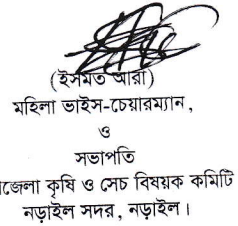 (ইসমত আরা)
মহিলা ভাইস-চেয়ারম্যান,
ও
সভাপতি
জেলা কৃষি ও সেচ বিষয়ক কমিটি
নড়াইল সদর, নড়াইল।